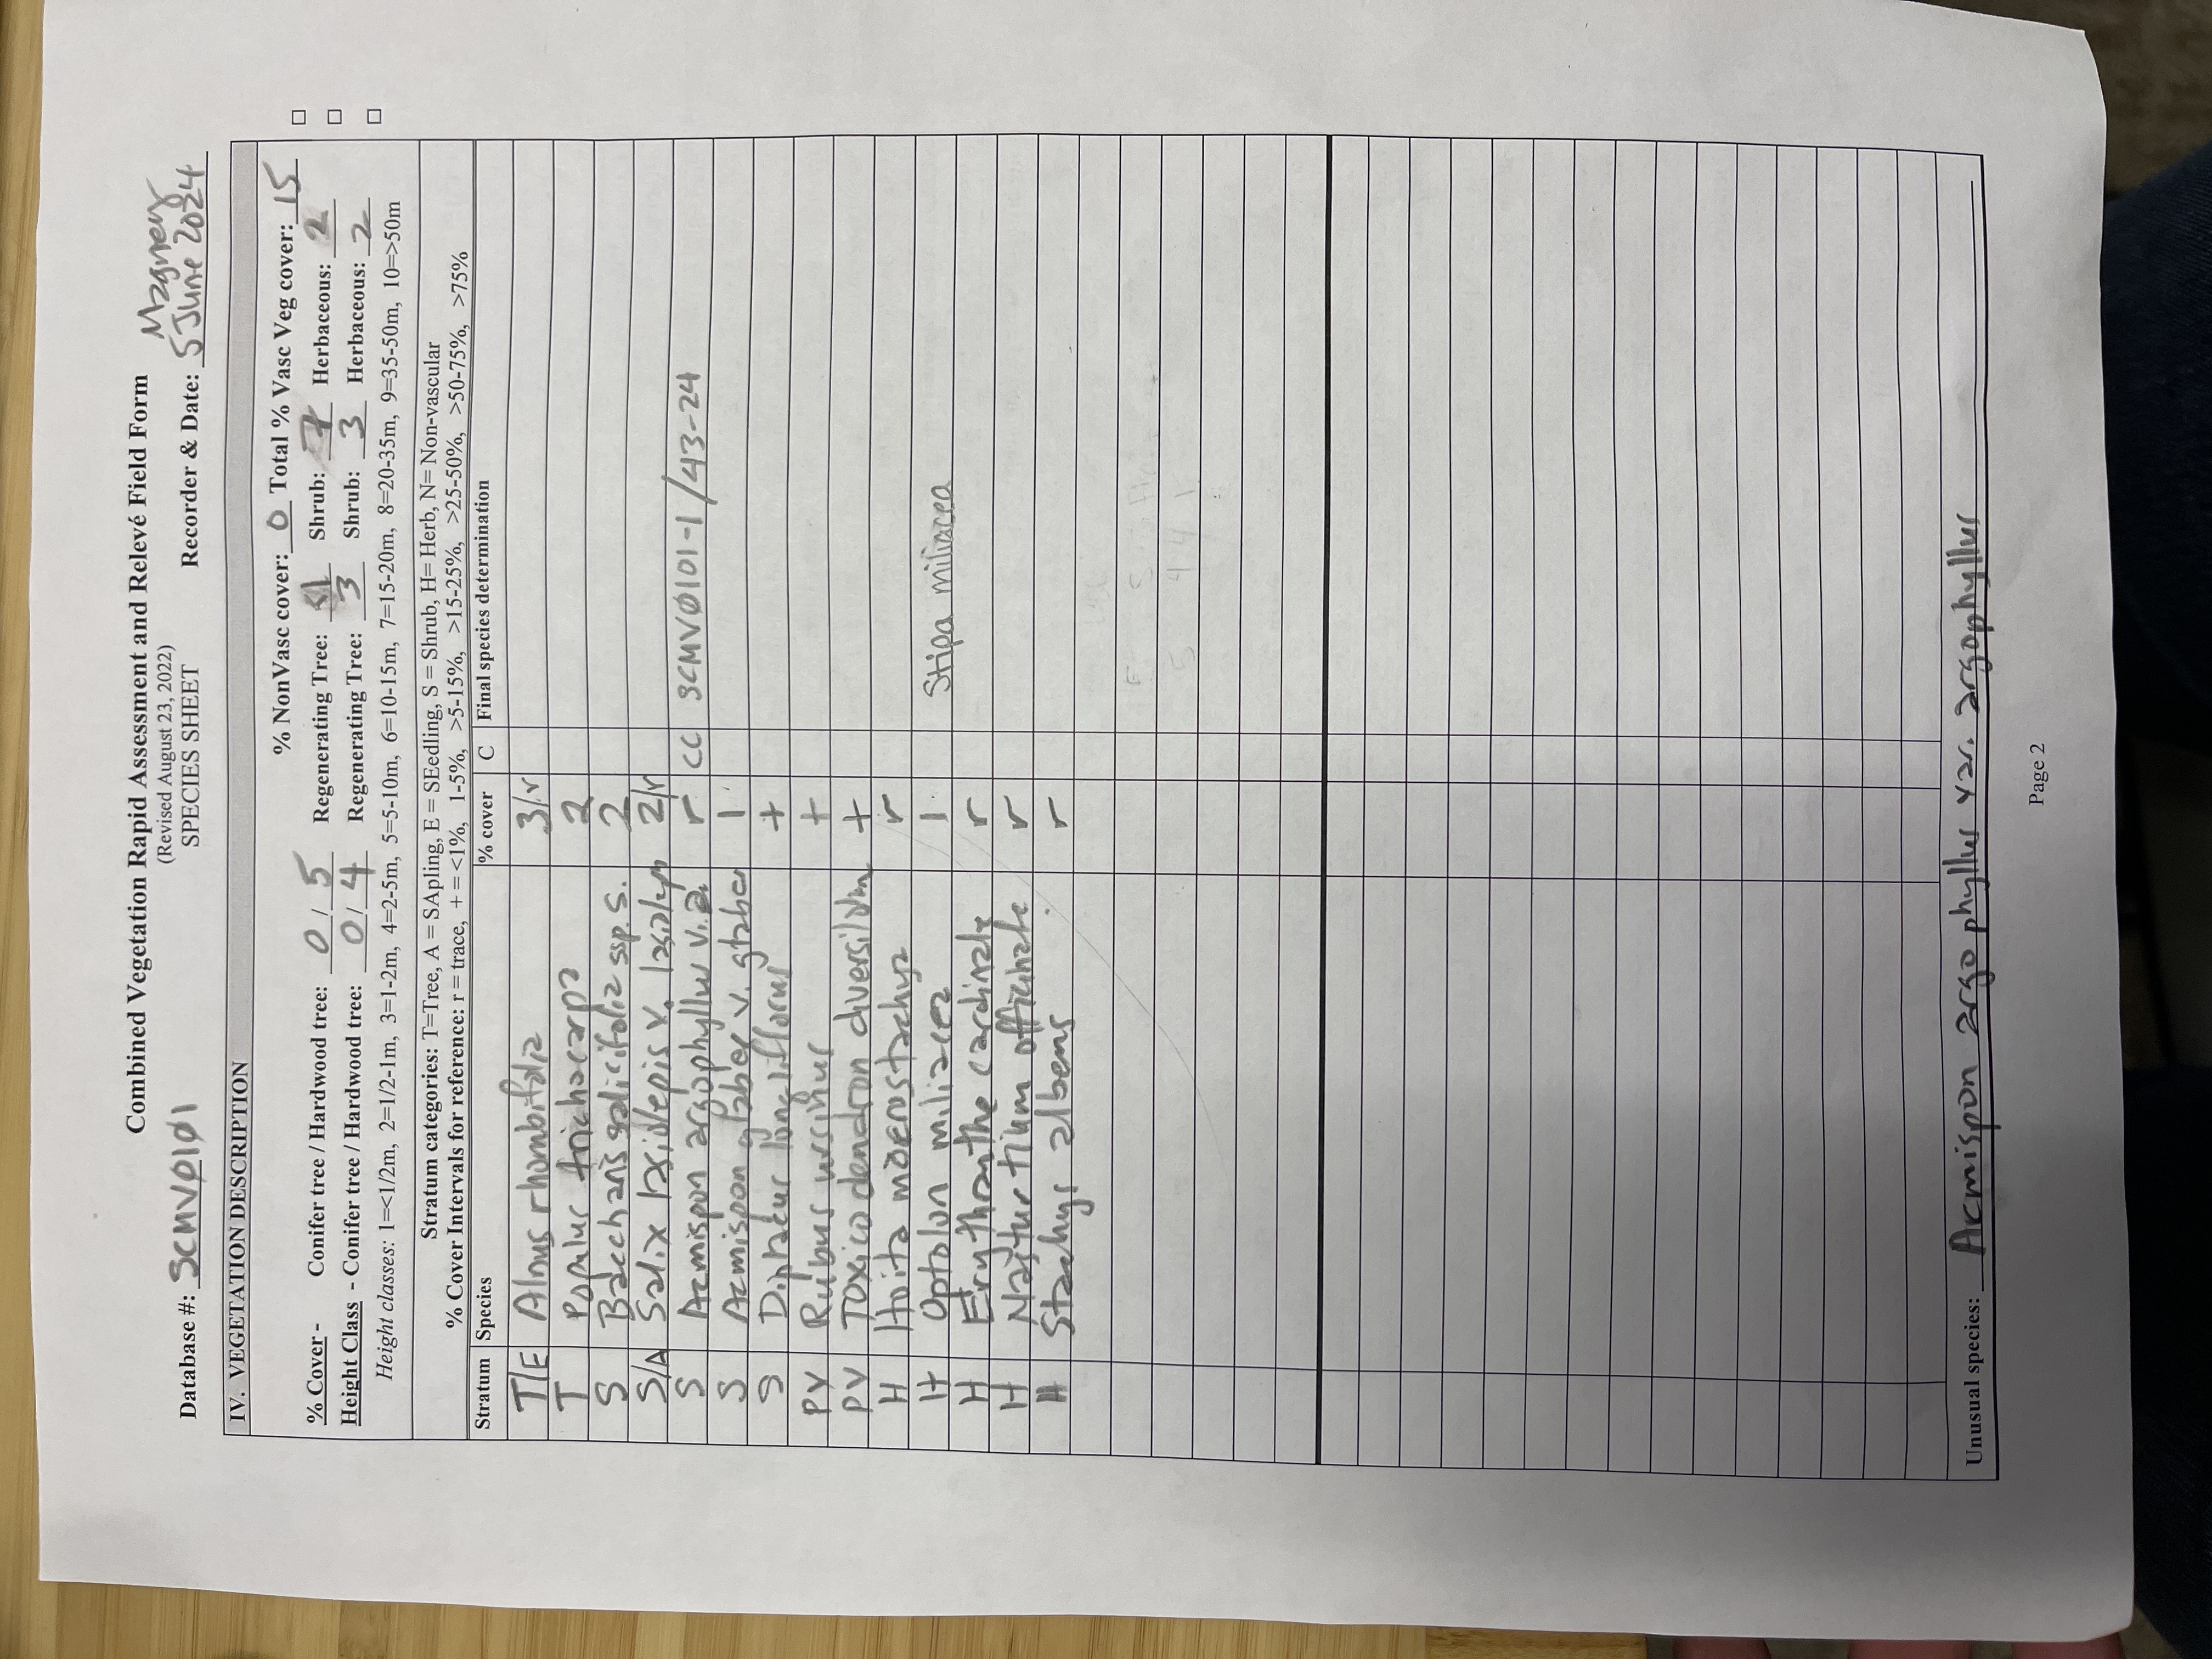 Combined Vegetation Rapid Assessment and Relevé Field Form
(Revised August 23, 2022)
SPECIES SHEET
Magney
Database #: SCMVØ1Ø1 Recorder & Date: 5 June 2024
IV. VEGETATION DESCRIPTION
% NonVasc cover: 0 Total % Vasc Veg cover: 15
% Cover - Conifer tree / Hardwood tree: 0 / 5 Regenerating Tree: <1 Shrub: 7 Herbaceous: 2
Height Class - Conifer tree / Hardwood tree: 0 / 4 Regenerating Tree: 3 Shrub: 3 Herbaceous: 2
Height classes: 1=<1/2m, 2=1/2-1m, 3=1-2m, 4=2-5m, 5=5-10m, 6=10-15m, 7=15-20m, 8=20-35m, 9=35-50m, 10=>50m
Stratum categories: T=Tree, A = SApling, E = SEedling, S = Shrub, H= Herb, N= Non-vascular
% Cover Intervals for reference: r = trace, + = <1%, 1-5%, >5-15%, >15-25%, >25-50%, >50-75%, >75%
Stratum Species % cover C Final species determination
T/E Alnus rhombifolia 3/r
T Populus trichocarpa 2
S Baccharis salicifolia ssp. s. 2
S/A Salix lasiolepis v. lasiolepis 2/r
S Acmispon argophyllus v. a. r CC SCMVØ101-1/43-24
S Acmispon glaber v. glaber 1
S Diplacus longiflorus +
PV Rubus ursinus +
PV Toxicodendron diversilobum +
H Hoita macrostachya r
H Optolon miliacea 1 Stipa miliacea
H Erythranthe cardinalis r
H Nasturtium officinale r
H Stachys albens r
Unusual species: Acmispon argophyllus var. argophyllus
Page 2